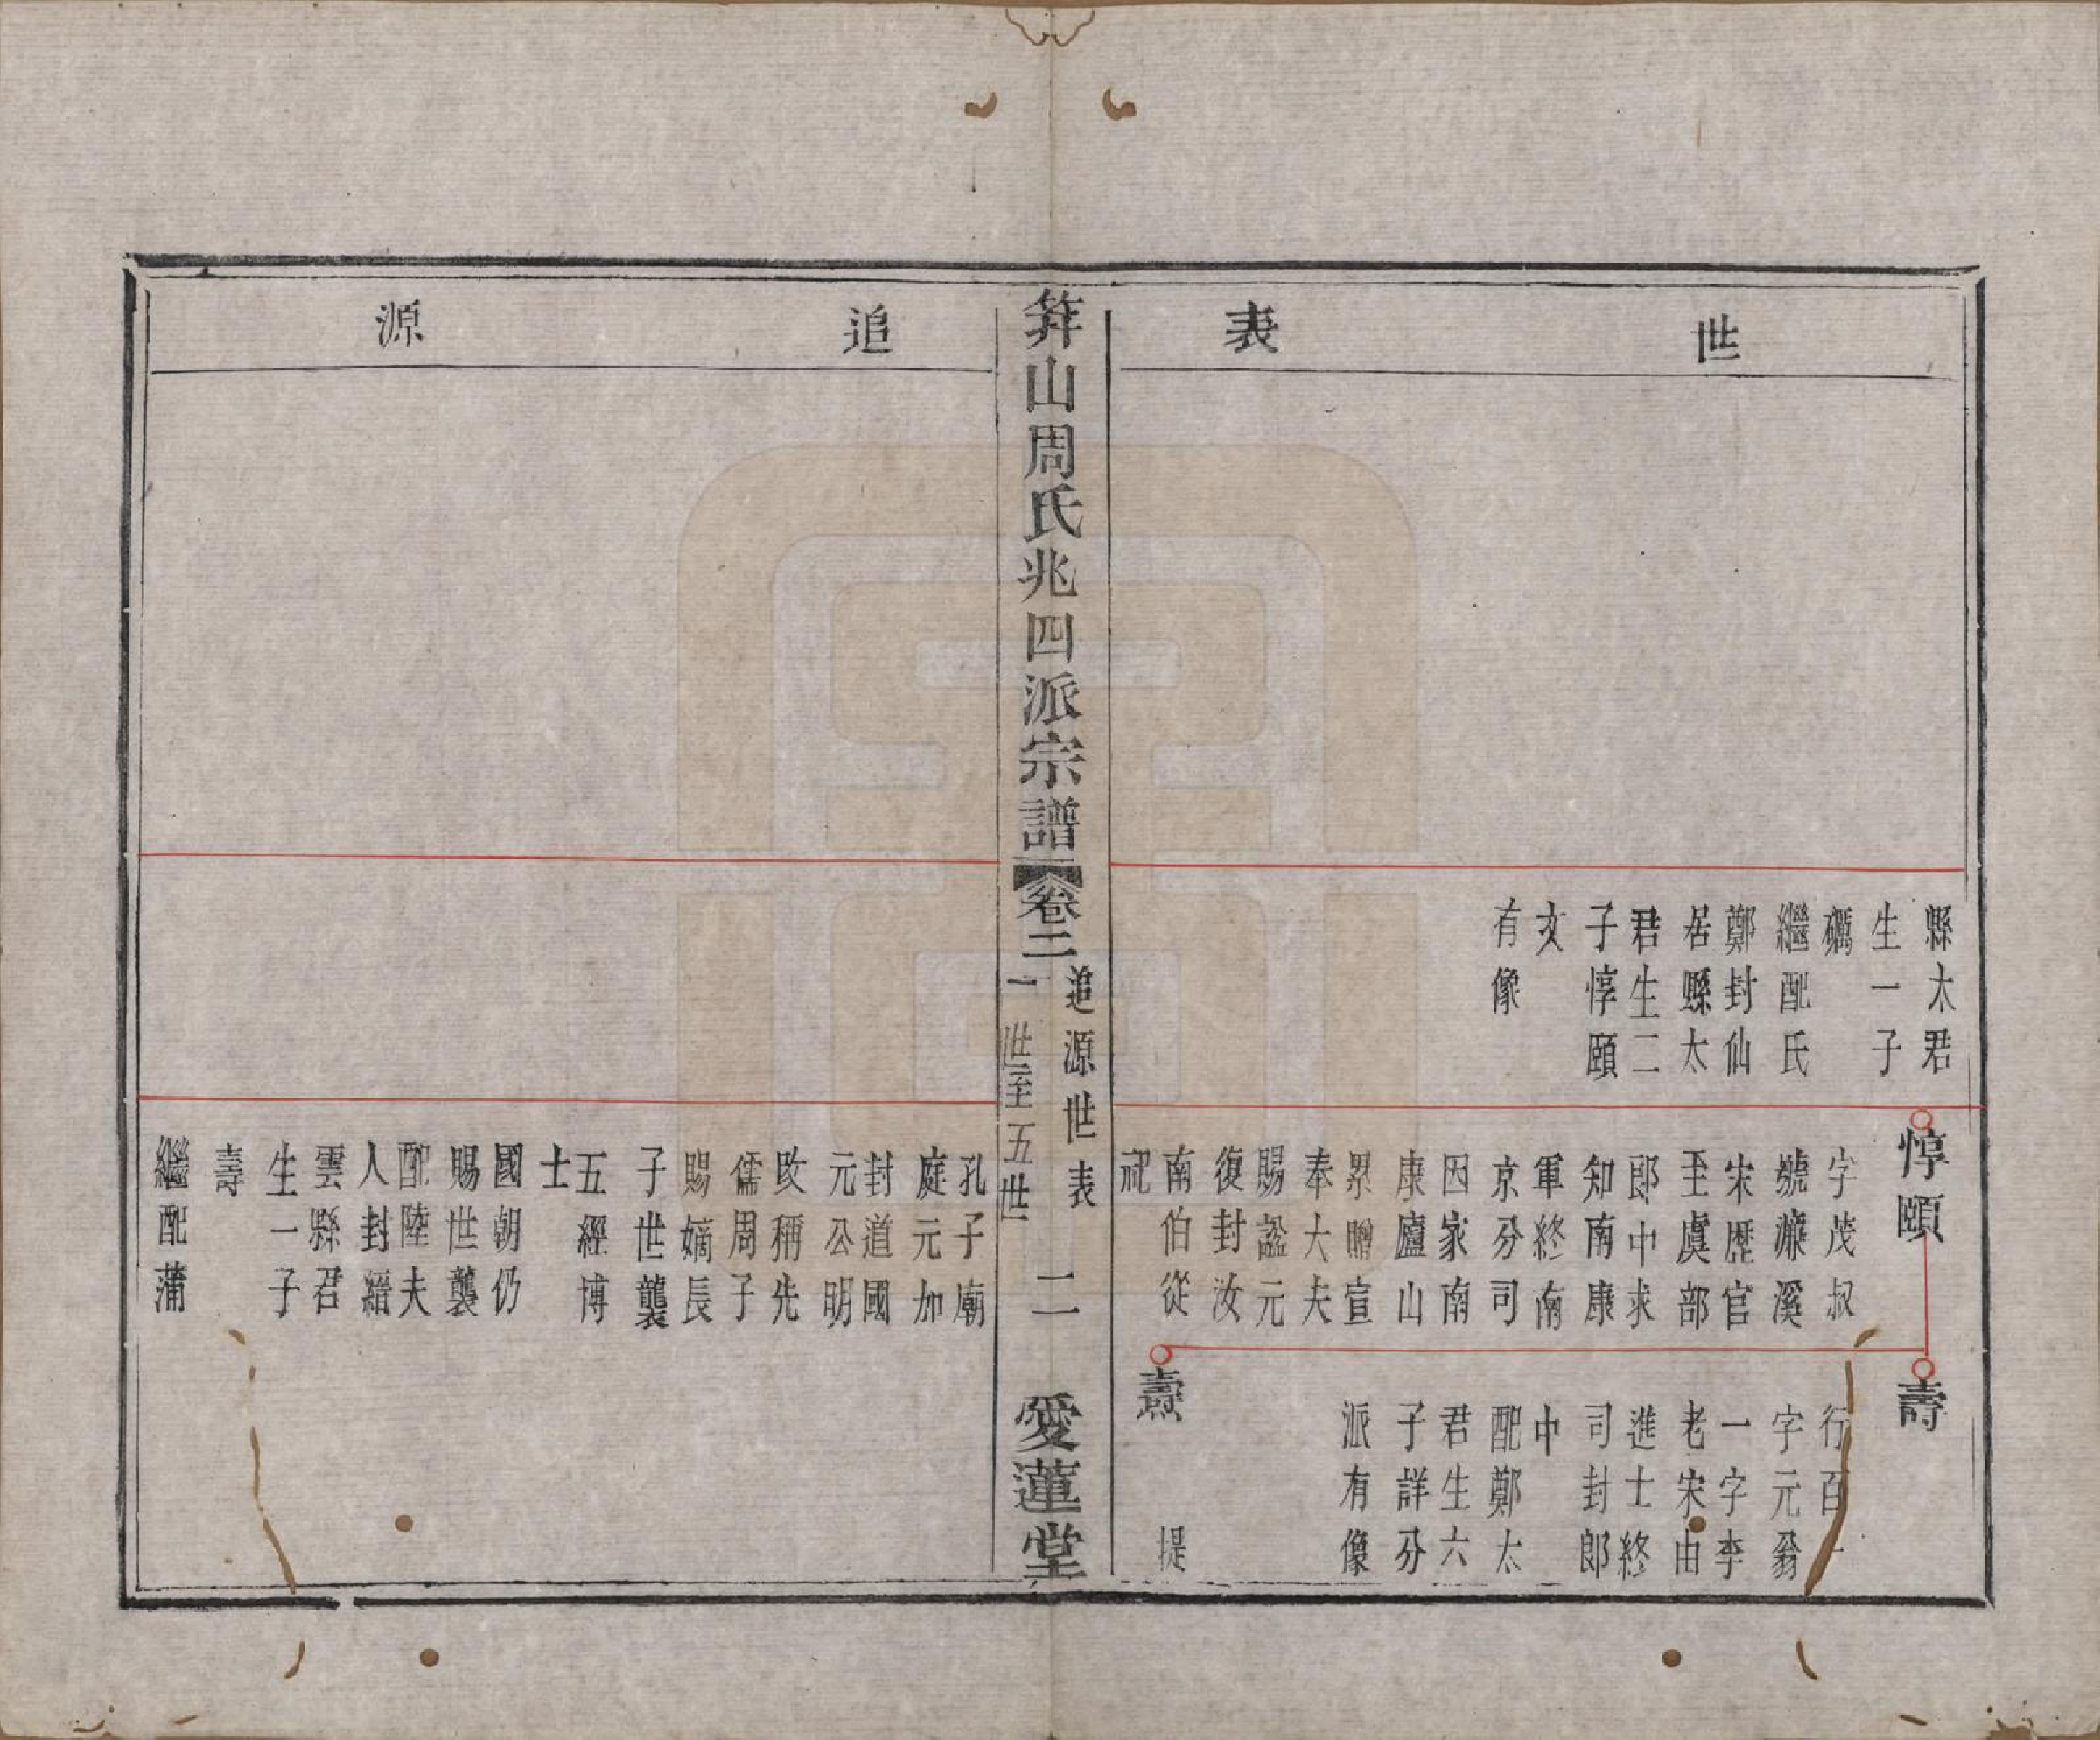 世表
縣太君
生一子
礪
繼配氏
鄭封仙
居縣太
君生二
子惇頤
文
有像
惇頤
字茂叔
號濂溪
宋歷官
至虞部
郎中求
知南康
軍終南
京分司
因家南
康廬山
累贈宣
奉大夫
賜諡元
復封汝
南伯從
祀
壽
行百一
字元翁
一字季
老宋由
進士終
司封郎
中
配鄭太
君生六
子詳分
派有像
燾
提
筭山周氏兆四派宗譜
卷二
追源世表
一世至五世
二
愛蓮堂
追源
孔子廟
庭元加
封道國
元公明
改稱先
儒周子
賜嫡長
子世襲
五經博
士
國朝仍
賜世襲
配陸夫
人封縉
雲縣君
生一子
壽
繼配蒲